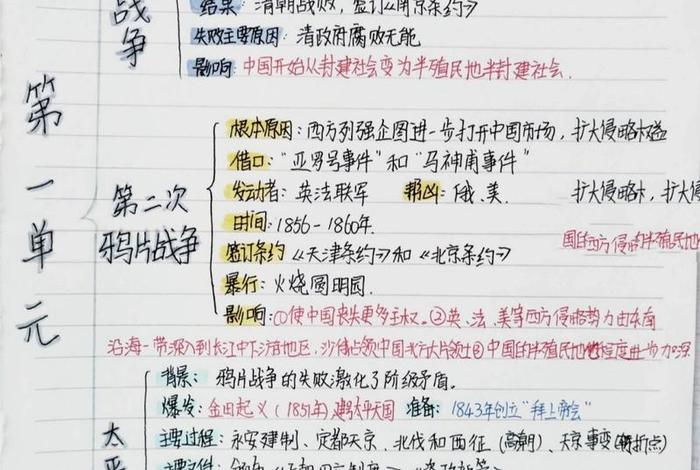 战争
结果：清朝战败，签订《南京条约》
失败主要原因：清政府腐败无能
影响：中国开始从封建社会变为半殖民地半封建社会.
第一单元
第二次鸦片战争
根本原因：西方列强企图进一步打开中国市场，扩大侵略权益
借口："亚罗号事件"和"马神甫事件"
发动者：英法联军 帮凶：俄、美. 扩大侵略
时间：1856-1860年.
国的西方侵略
签订条约《天津条约》和《北京条约》
暴行：火烧圆明园.
影响：①使中国丧失更多主权.②英、法、美等西方侵略势力由东南
沿海一带深入到长江中下游地区，沙俄占领中国北方大片领土③中国的半殖民地化程度进一步加深
太平
背景：鸦片战争的失败激化了阶级矛盾。
爆发：金田起义（1851年）建号太平天国 准备：1843年创立"拜上帝会"
主要过程：永安建制、定都天京、北伐和西征（高潮）、天京事变（转折点）